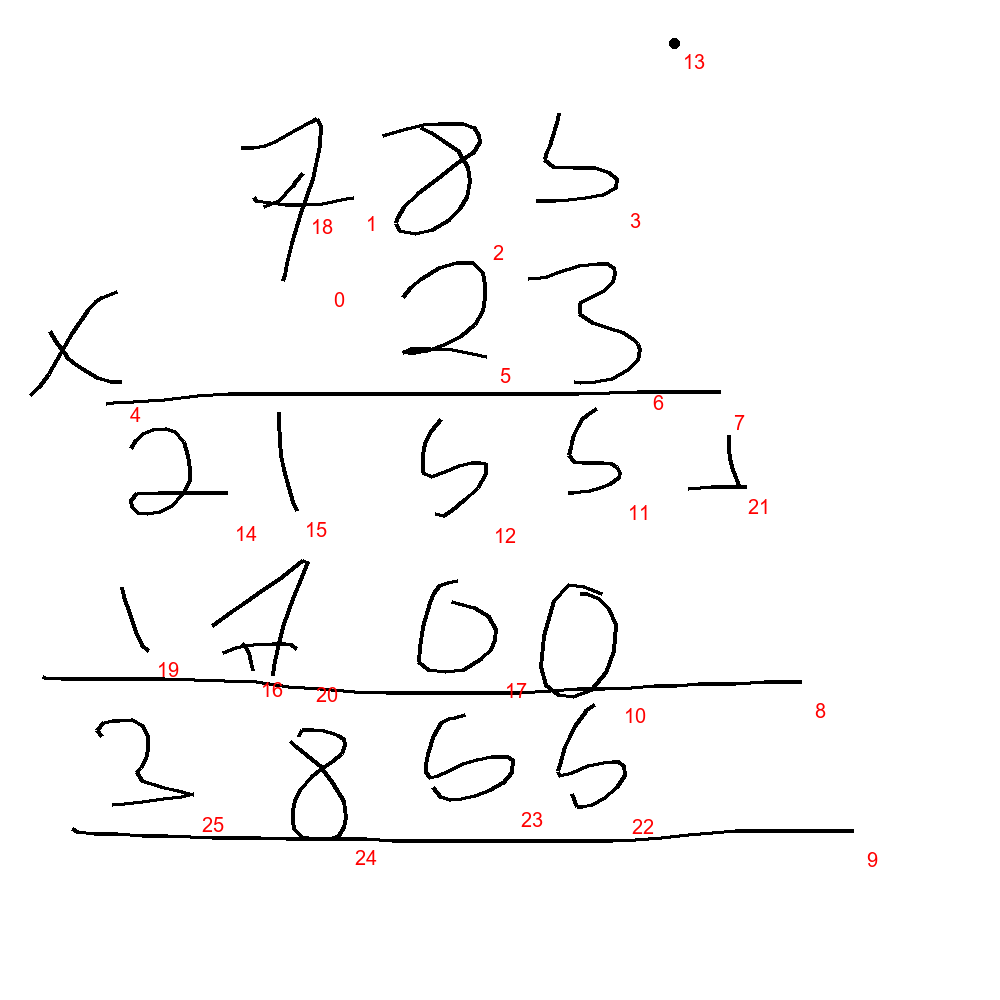 13
785
18 1 3
2
0
x 23
5
4 6
7
21551
14 15 12 11 21
1700
19 16 20 17 10 8
3855
25 24 23 22 9